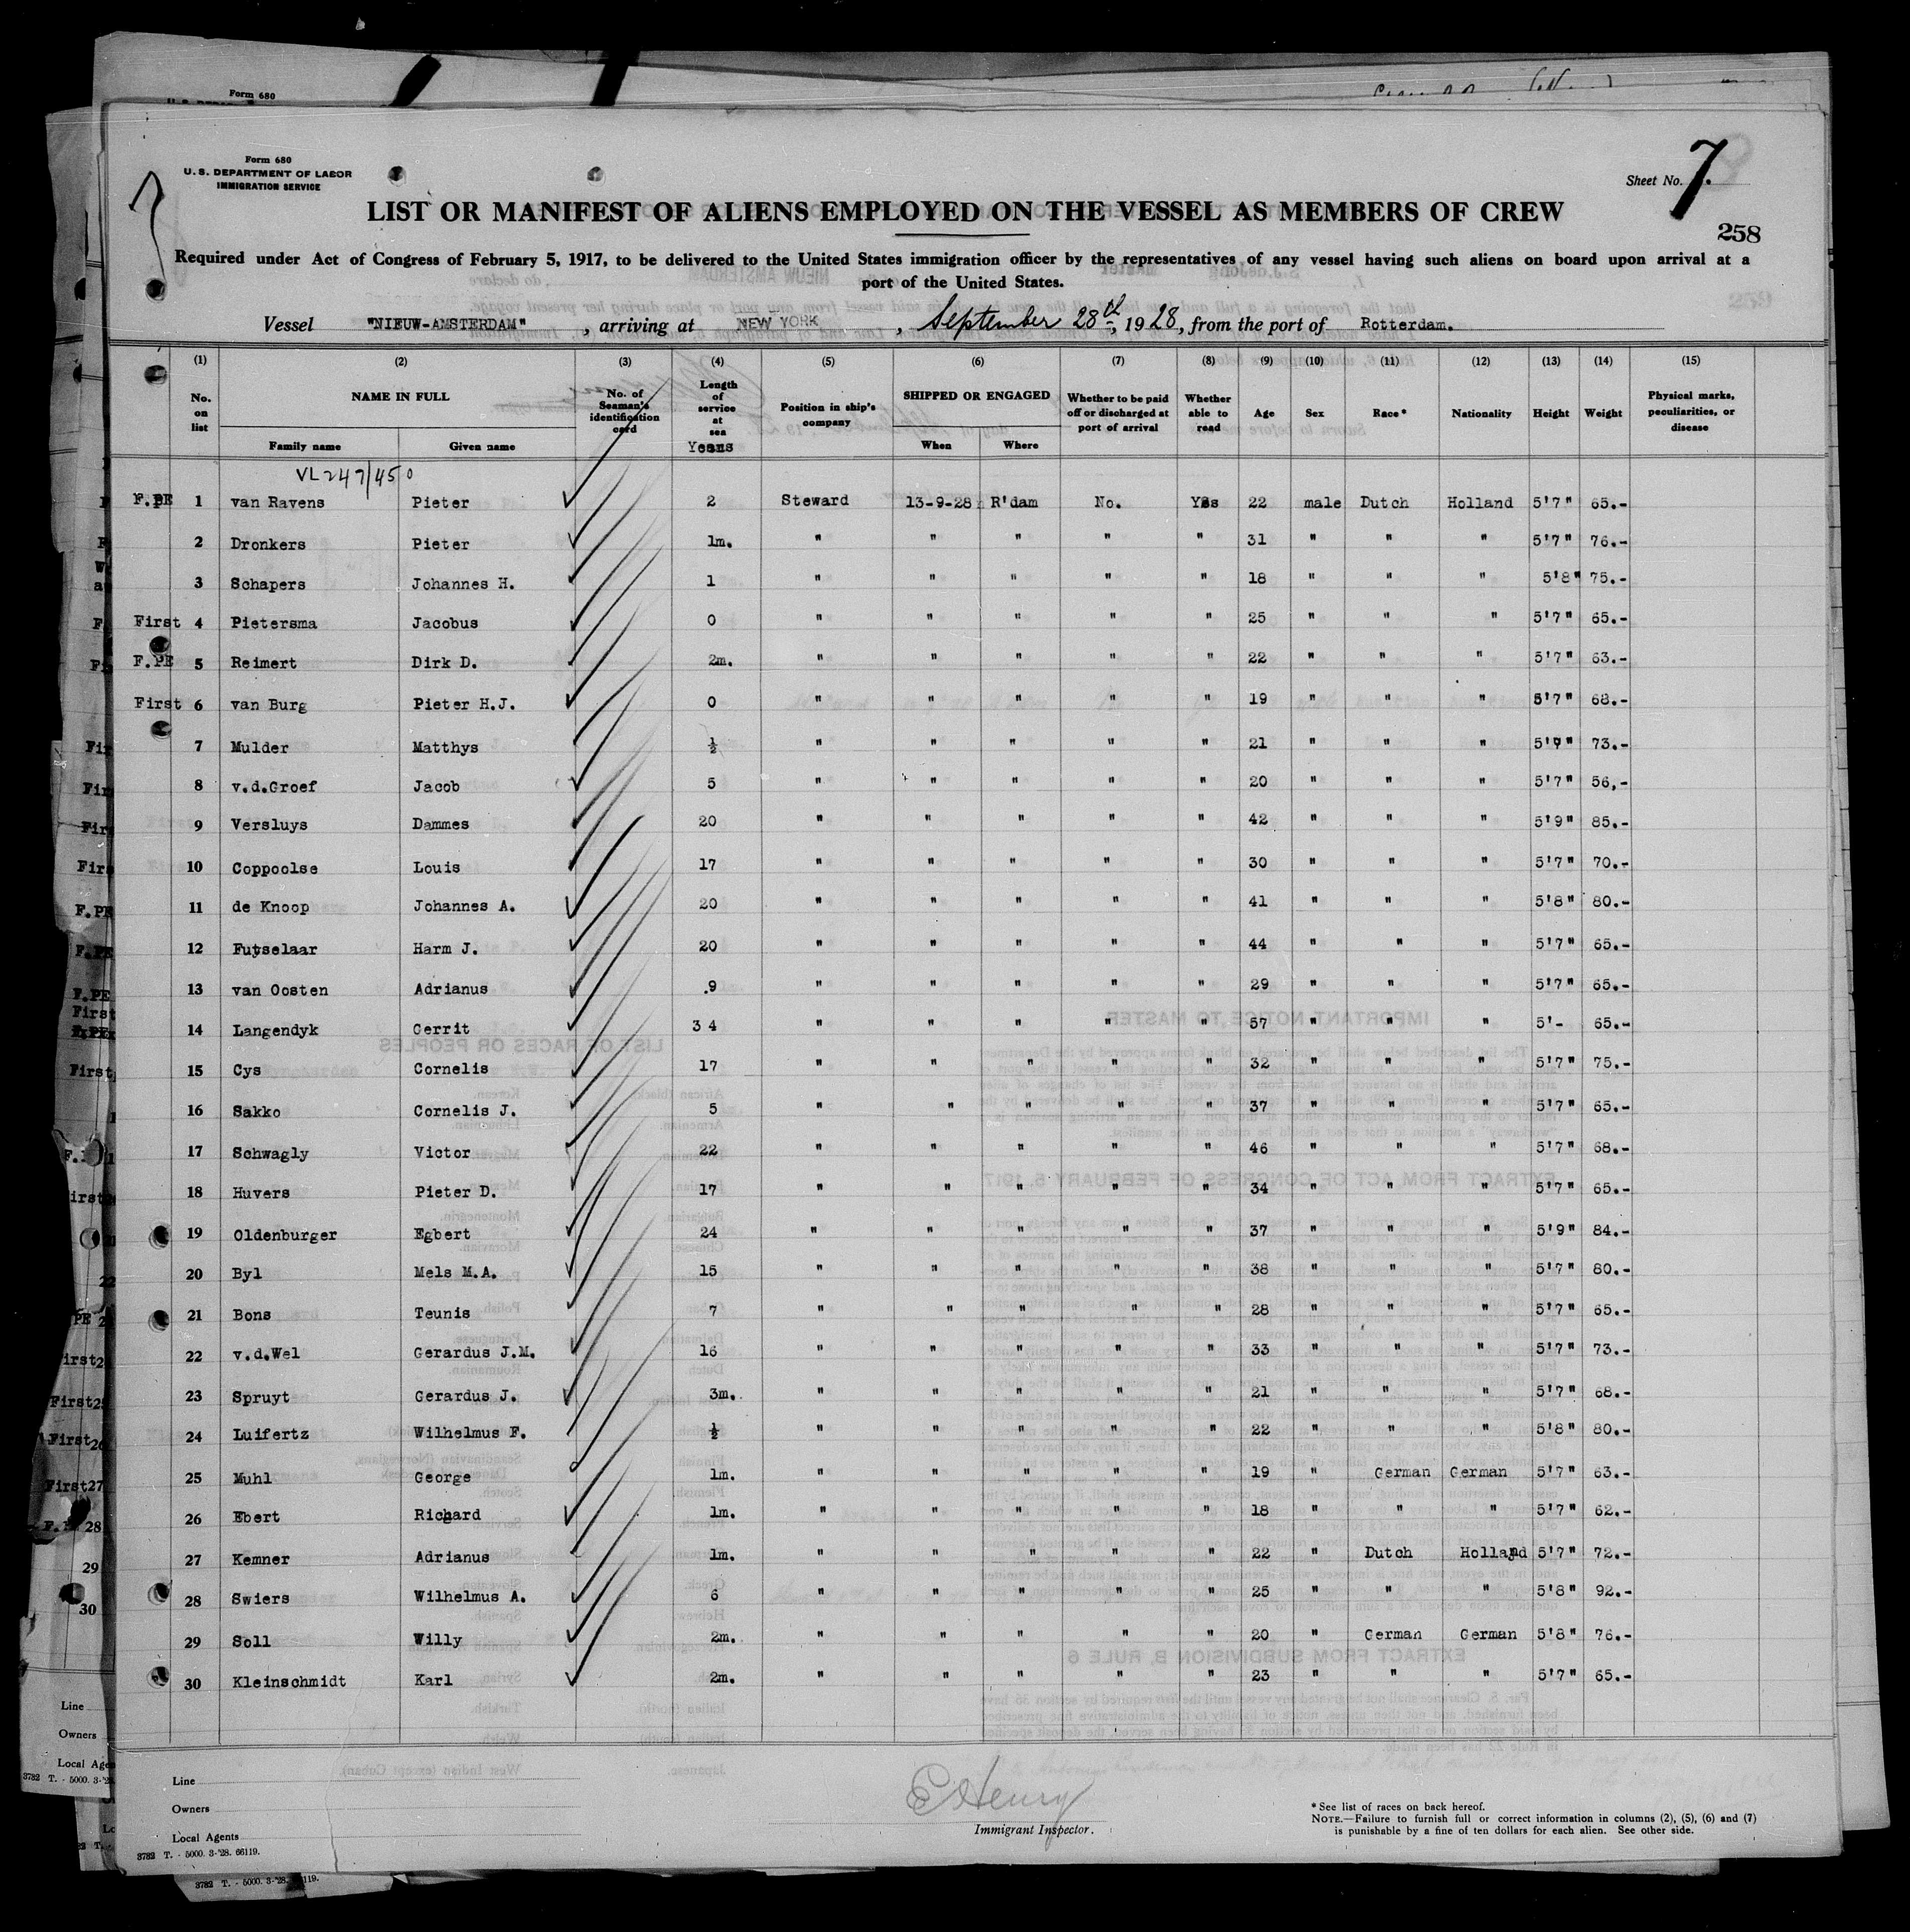 Form 680
Form 680
U. S. DEPARTMENT OF LABOR
IMMIGRATION SERVICE
Sheet No. 7.
LIST OR MANIFEST OF ALIENS EMPLOYED ON THE VESSEL AS MEMBERS OF CREW
258
Required under Act of Congress of February 5, 1917, to be delivered to the United States immigration officer by the representatives of any vessel having such aliens on board upon arrival at a
port of the United States.
Vessel "NIEUW-AMSTERDAM", arriving at NEW YORK, September 28th, 1928, from the port of Rotterdam.
(1) (2) (3) (4) (5) (6) (7) (8) (9) (10) (11) (12) (13) (14) (15)
No. on list NAME IN FULL Family name Given name No. of Seaman's identification card Length of service at sea Years Position in ship's company SHIPPED OR ENGAGED When Where Whether to be paid off or discharged at port of arrival Whether able to read Age Sex Race* Nationality Height Weight Physical marks, peculiarities, or disease
VL 247/450
F.PE 1 van Ravens Pieter 2 Steward 13-9-28 R'dam No. Yes 22 male Dutch Holland 5'7" 65.-
2 Dronkers Pieter 1m. " " " " " 31 " " " 5'7" 76.-
3 Schapers Johannes H. 1 " " " " " 18 " " " 5'8" 75.-
First 4 Pietersma Jacobus 0 " " " " " 25 " " " 5'7" 65.-
F.PE 5 Reimert Dirk D. 2m. " " " " " 22 " " " 5'7" 63.-
First 6 van Burg Pieter H.J. 0 " " " " " 19 " " " 5'7" 68.-
7 Mulder Matthys ½ " " " " " 21 " " " 5'9" 73.-
8 v.d.Groef Jacob 5 " " " " " 20 " " " 5'7" 56,-
9 Versluys Dammes 20 " " " " " 42 " " " 5'9" 85.-
10 Coppoolse Louis 17 " " " " " 30 " " " 5'7" 70.-
11 de Knoop Johannes A. 20 " " " " " 41 " " " 5'8" 80.-
12 Futselaar Harm J. 20 " " " " " 44 " " " 5'7" 65.-
13 van Oosten Adrianus .9 " " " " " 29 " " " 5'7" 65.-
14 Langendyk Gerrit 3 4 " " " " " 57 " " " 5'- 65.-
15 Cys Cornelis 17 " " " " " 32 " " " 5'7" 75.-
16 Sakko Cornelis J. 5 " " " " " 37 " " " 5'7" 65.-
17 Schwagly Victor 22 " " " " " 46 " " " 5'7" 68.-
18 Huvers Pieter D. 17 " " " " " 34 " " " 5'7" 65.-
19 Oldenburger Egbert 24 " " " " " 37 " " " 5'9" 84.-
20 Byl Mels M.A. 15 " " " " " 38 " " " 5'7" 80.-
21 Bons Teunis 7 " " " " " 28 " " " 5'7" 65.-
22 v.d.Wel Gerardus J.M. 16 " " " " " 33 " " " 5'7" 73.-
23 Spruyt Gerardus J. 3m. " " " " " 21 " " " 5'7" 68.-
24 Luifertz Wilhelmus F. ½ " " " " " 22 " " " 5'8" 80.-
25 Muhl George 1m. " " " " " 19 " German German 5'7" 63.-
26 Ebert Richard 1m. " " " " " 18 " " " 5'7" 62.-
27 Kemner Adrianus 1m. " " " " " 22 " Dutch Holland 5'7" 72.-
28 Swiers Wilhelmus A. 6 " " " " " 25 " " " 5'8" 92.-
29 Soll Willy 2m. " " " " " 20 " German German 5'8" 76.-
30 Kleinschmidt Karl 2m. " " " " " 23 " " " 5'7" 65.-
Line
Owners
Local Agents
3782 T. - 5000. 3-'28. 66119.
E Henry
Immigrant Inspector.
* See list of races on back hereof.
NOTE.—Failure to furnish full or correct information in columns (2), (5), (6) and (7)
is punishable by a fine of ten dollars for each alien. See other side.